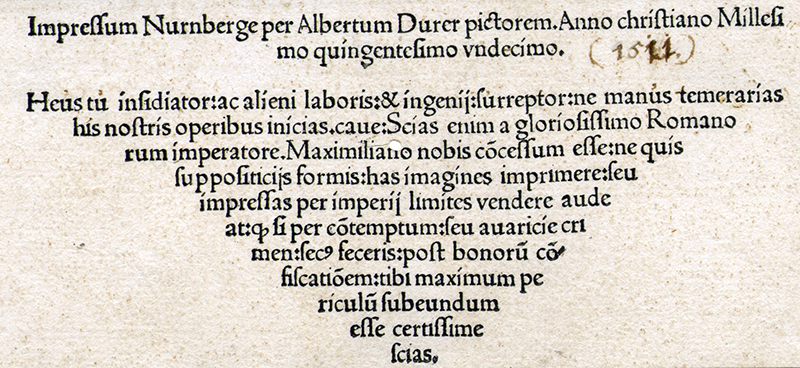 Impreſſum Nurnberge per Albertum Durer pictorem. Anno chriſtiano Milleſi
mo quingenteſimo vndecimo. (1511.)
Heus tu inſidiator: ac alieni laboris: & ingenij: ſurreptor: ne manus temerarias
his noſtris operibus inicias. caue: Scias enim a glorioſiſſimo Romano
rum imperatore. Maximiliano nobis cõceſſum eſſe: ne quis
ſuppoſiticijs formis: has imagines imprimere: ſeu
impreſſas per imperij limites vendere aude
at: ꝙ ſi per cõtemptum: ſeu auaricie cri
men: ſecꝰ feceris: poſt bonorũ cõ
fiſcatiõem: tibi maximum pe
riculũ ſubeundum
eſſe certiſſime
ſcias.